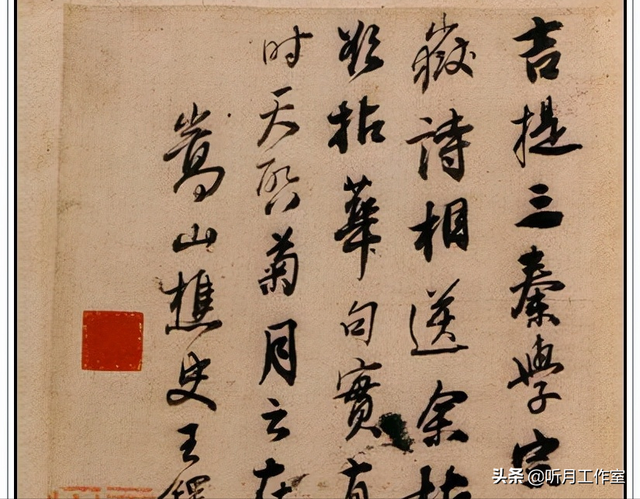 吉提三秦學
嶽詩相送余
拈華句實
时天啓菊月云
嵩山樵史王鐸
头条 @听月工作室